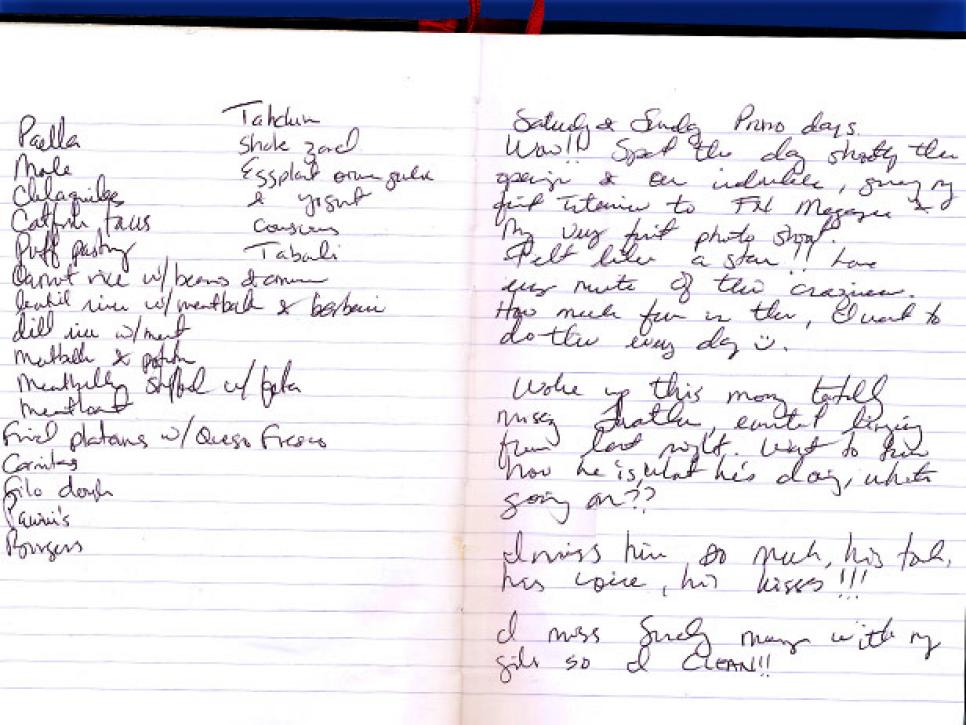 Paella
Mole
Chilaquiles
Catfish tacos
Puff pastry
Carrot rice w/ beans & cumin
lentil rice w/ meatballs & barberries
dill rice w/ meat
Meatballs & potato
Meatballs stuffed w/ feta
Meatloaf
Fried platains w/ Queso Fresco
Carnitas
Filo dough
Panini's
Burgers
Tahdim
Eggplant
& yogurt
couscous
Tabuli
Saturday & Sunday Promo days.
Wow!! Spent the day shooting the
opening & giving my
first interview to FN Magazine &
My very first photo shoot.
Felt like a star!! Love
every minute of this craziness.
How much fun is this, I want to
do this every day
Woke up this morning totally
missing
from last night. Want to know
how he is, what he's doing, what's
going on??
I miss him so much, his touch,
his voice, his kisses!!!
I miss Sunday mornings with my
girls so I CLEAN!!